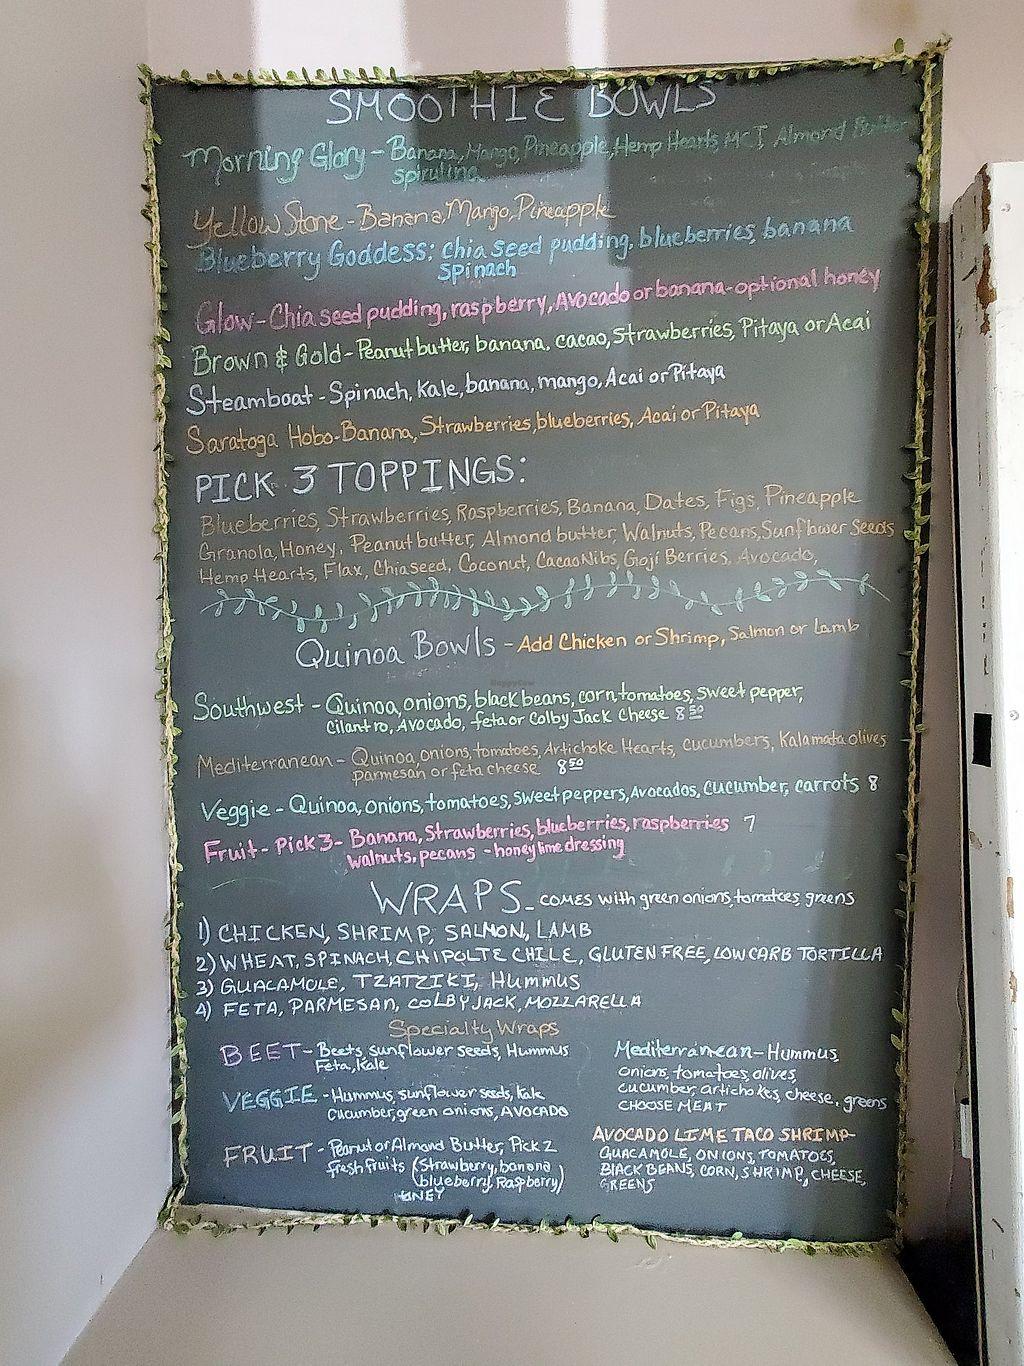 SMOOTHIE BOWLS
Morning Glory - Banana, Mango, Pineapple, Hemp Hearts, MCT, Almond Butter
spirulina
Yellow Stone - Banana, Mango, Pineapple
Blueberry Goddess: Chia seed pudding, blueberries, banana
Spinach
Glow - Chia seed pudding, raspberry, Avocado or banana - optional honey
Brown & Gold - Peanut butter, banana, cacao, Strawberries, Pitaya or Acai
Steamboat - Spinach, Kale, banana, mango, Acai or Pitaya
Saratoga Hobo - Banana, Strawberries, blueberries, Acai or Pitaya
PICK 3 TOPPINGS:
Blueberries, Strawberries, Raspberries, Banana, Dates, Figs, Pineapple
Granola, Honey, Peanut butter, Almond butter, Walnuts, Pecans, Sunflower Seeds
Hemp Hearts, Flax, Chiaseed, Coconut, Cacao Nibs, Goji Berries, Avocado,
Quinoa Bowls - Add Chicken or Shrimp, Salmon or Lamb
HappyCow
Southwest - Quinoa, onions, black beans, corn, tomatoes, sweet pepper,
cilantro, Avocado, feta or Colby Jack Cheese 8 50
Mediterranean - Quinoa, onions, tomatoes, Artichoke Hearts, cucumbers, Kalamata olives
parmesan or feta cheese 8 50
Veggie - Quinoa, onions, tomatoes, sweet peppers, Avocados, cucumber, carrots 8
Fruit - Pick 3 - Banana, Strawberries, blueberries, raspberries 7
walnuts, pecans - honey lime dressing
WRAPS - COMES with green onions, tomatoes, greens
1) CHICKEN, SHRIMP, SALMON, LAMB
2) WHEAT, SPINACH, CHIPOLTE CHILE, GLUTEN FREE, LOW CARB TORTILLA
3) GUACAMOLE, TZATZIKI, HUMMUS
4) FETA, PARMESAN, COLBY JACK, MOZZARELLA
Specialty Wraps
BEET - Beets, sunflower seeds, Hummus
Feta, Kale
VEGGIE - Hummus, sunflower seeds, Kale
Cucumber, green onions, AVOCADO
FRUIT - Peanut or Almond Butter, Pick 2
fresh fruits (Strawberry, banana
blueberry, Raspberry)
HONEY
Mediterranean - Hummus,
onions, tomatoes, olives,
cucumber, artichokes, cheese, greens
CHOOSE MEAT
AVOCADO LIME TACO SHRIMP -
GUACAMOLE, ONIONS, TOMATOES,
BLACK BEANS, CORN, SHRIMP, CHEESE,
GREENS